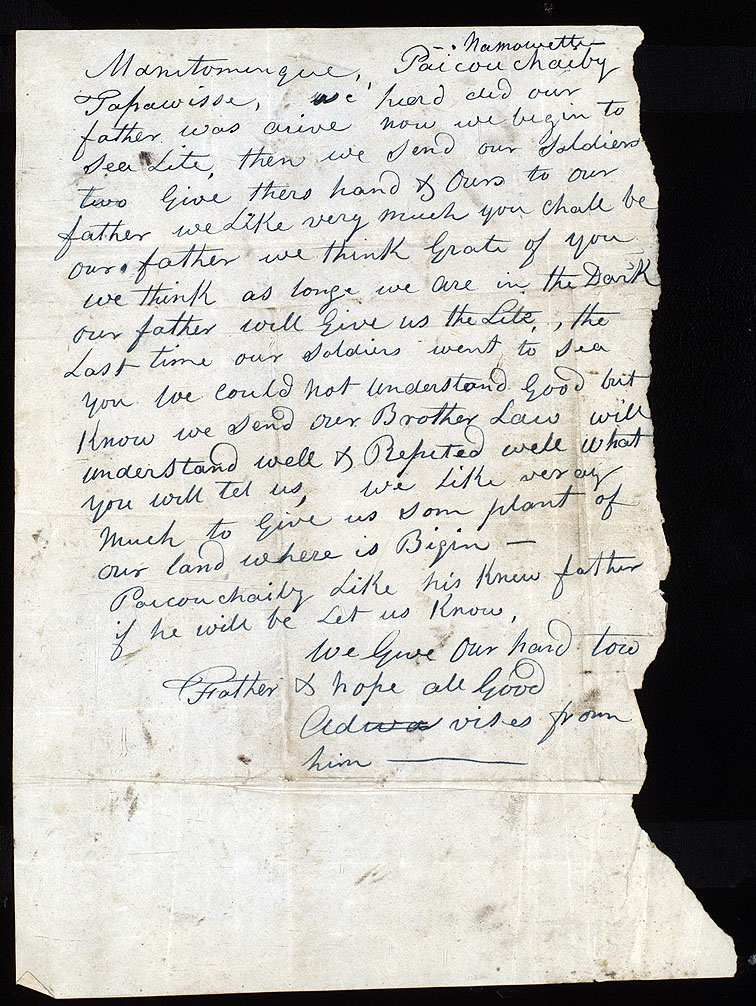 Namowette
Manitominque, Paicouchaiby
Papawisse, we hard did our
father was arive now we begin to
sea Lite, then we send our Soldiers
two Give thers hand & Ours to our
father we Like very much you Chall be
our father we think Grate of you
we think as longe we are in the Dark
our father will Give us the Lite, the
Last time our Soldiers went to sea
you we could not understand Good but
Know we send our Brother Law will
understand well & Reputed well what
you will tel us, we Like veray
much to Give us som plant of
our land where is Bigin —
Paicouchaiby Like his Knew father
if he will be Let us Know,
We Give Our hand tow
Father & hope all Good
Adwa vises from
him